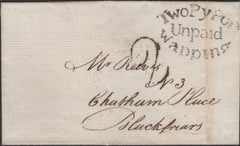 Two Py Post
Unpaid
Wapping
2
Mr Reeve
No 3
Chatham Place
Blackfriars